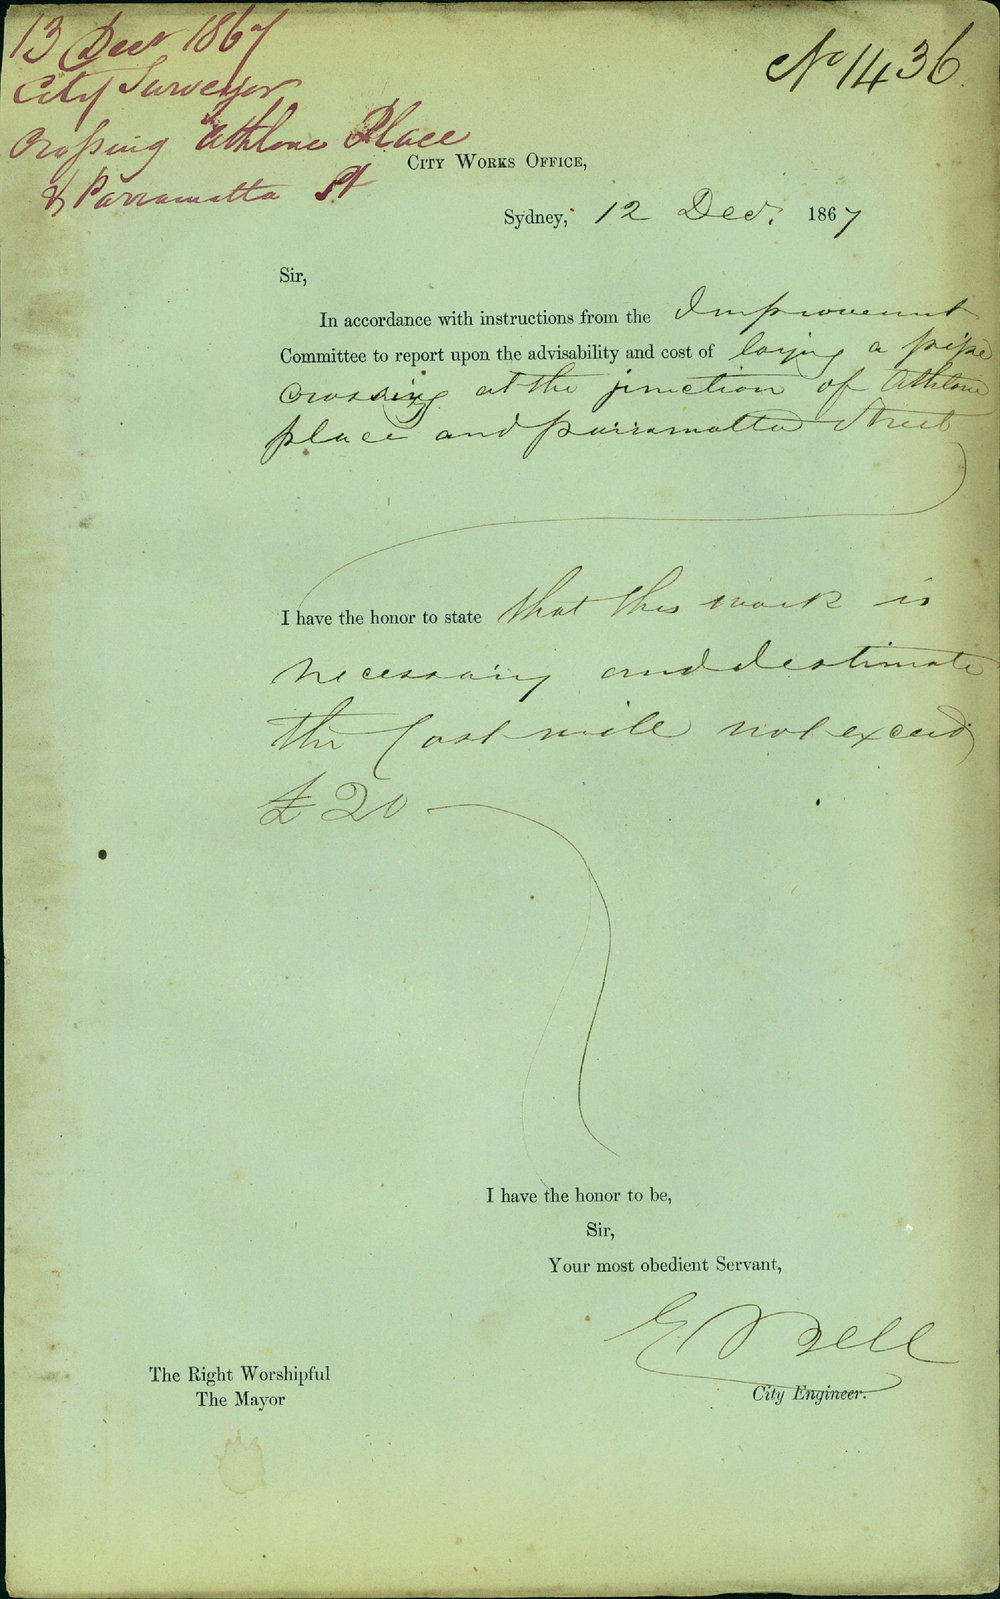 13 Decr 1867
City Surveyor
Crossing Athlone Place
& Parramatta St
No 1436
City Works Office,
Sydney, 12 Decr. 1867
Sir,
In accordance with instructions from the Improvement
Committee to report upon the advisability and cost of laying a pipe
crossing at the junction of Athlone
place and parramatta Street
I have the honor to state that this work is
necessary and I estimate
the Cost will not exceed
£20
I have the honor to be,
Sir,
Your most obedient Servant,
E Bell
City Engineer.
The Right Worshipful
The Mayor